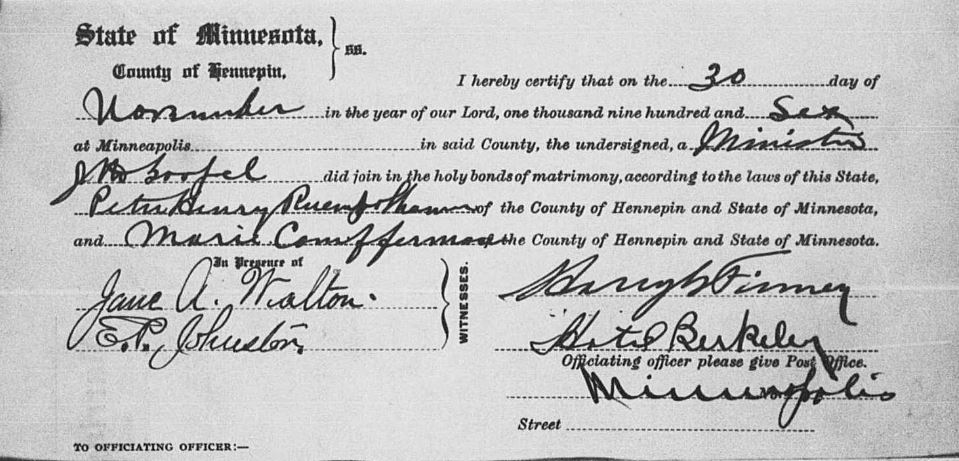 State of Minnesota, } ss.
County of Hennepin.
I hereby certify that on the 30 day of
November in the year of our Lord, one thousand nine hundred and Six
at Minneapolis in said County, the undersigned, a Minister
did join in the holy bonds of matrimony, according to the laws of this State,
Peter Henry of the County of Hennepin and State of Minnesota,
and Marie of the County of Hennepin and State of Minnesota.
In Presence of
Jane A. Walton.
E.P. Johnston.
WITNESSES.
Harry G Finney
Hotel Berkeley
Officiating officer please give Post Office.
Minneapolis
Street
TO OFFICIATING OFFICER:—